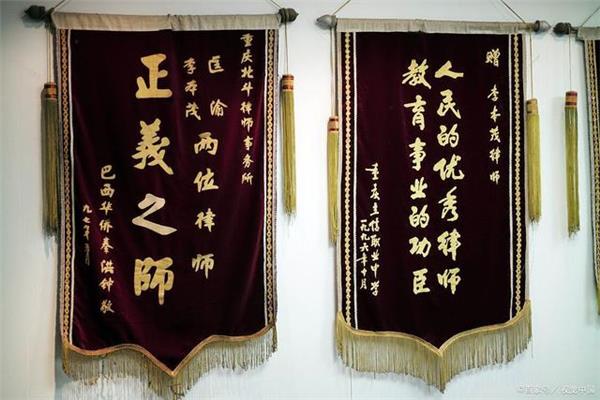 重庆北斗律师事务所
匡渝
李本茂
两位律师
正義之師
巴西华侨秦洪钟敬
九七年
赠 李本茂律师
人民的优秀律师
教育事业的功臣
重庆立信职业中学
一九九六年十月